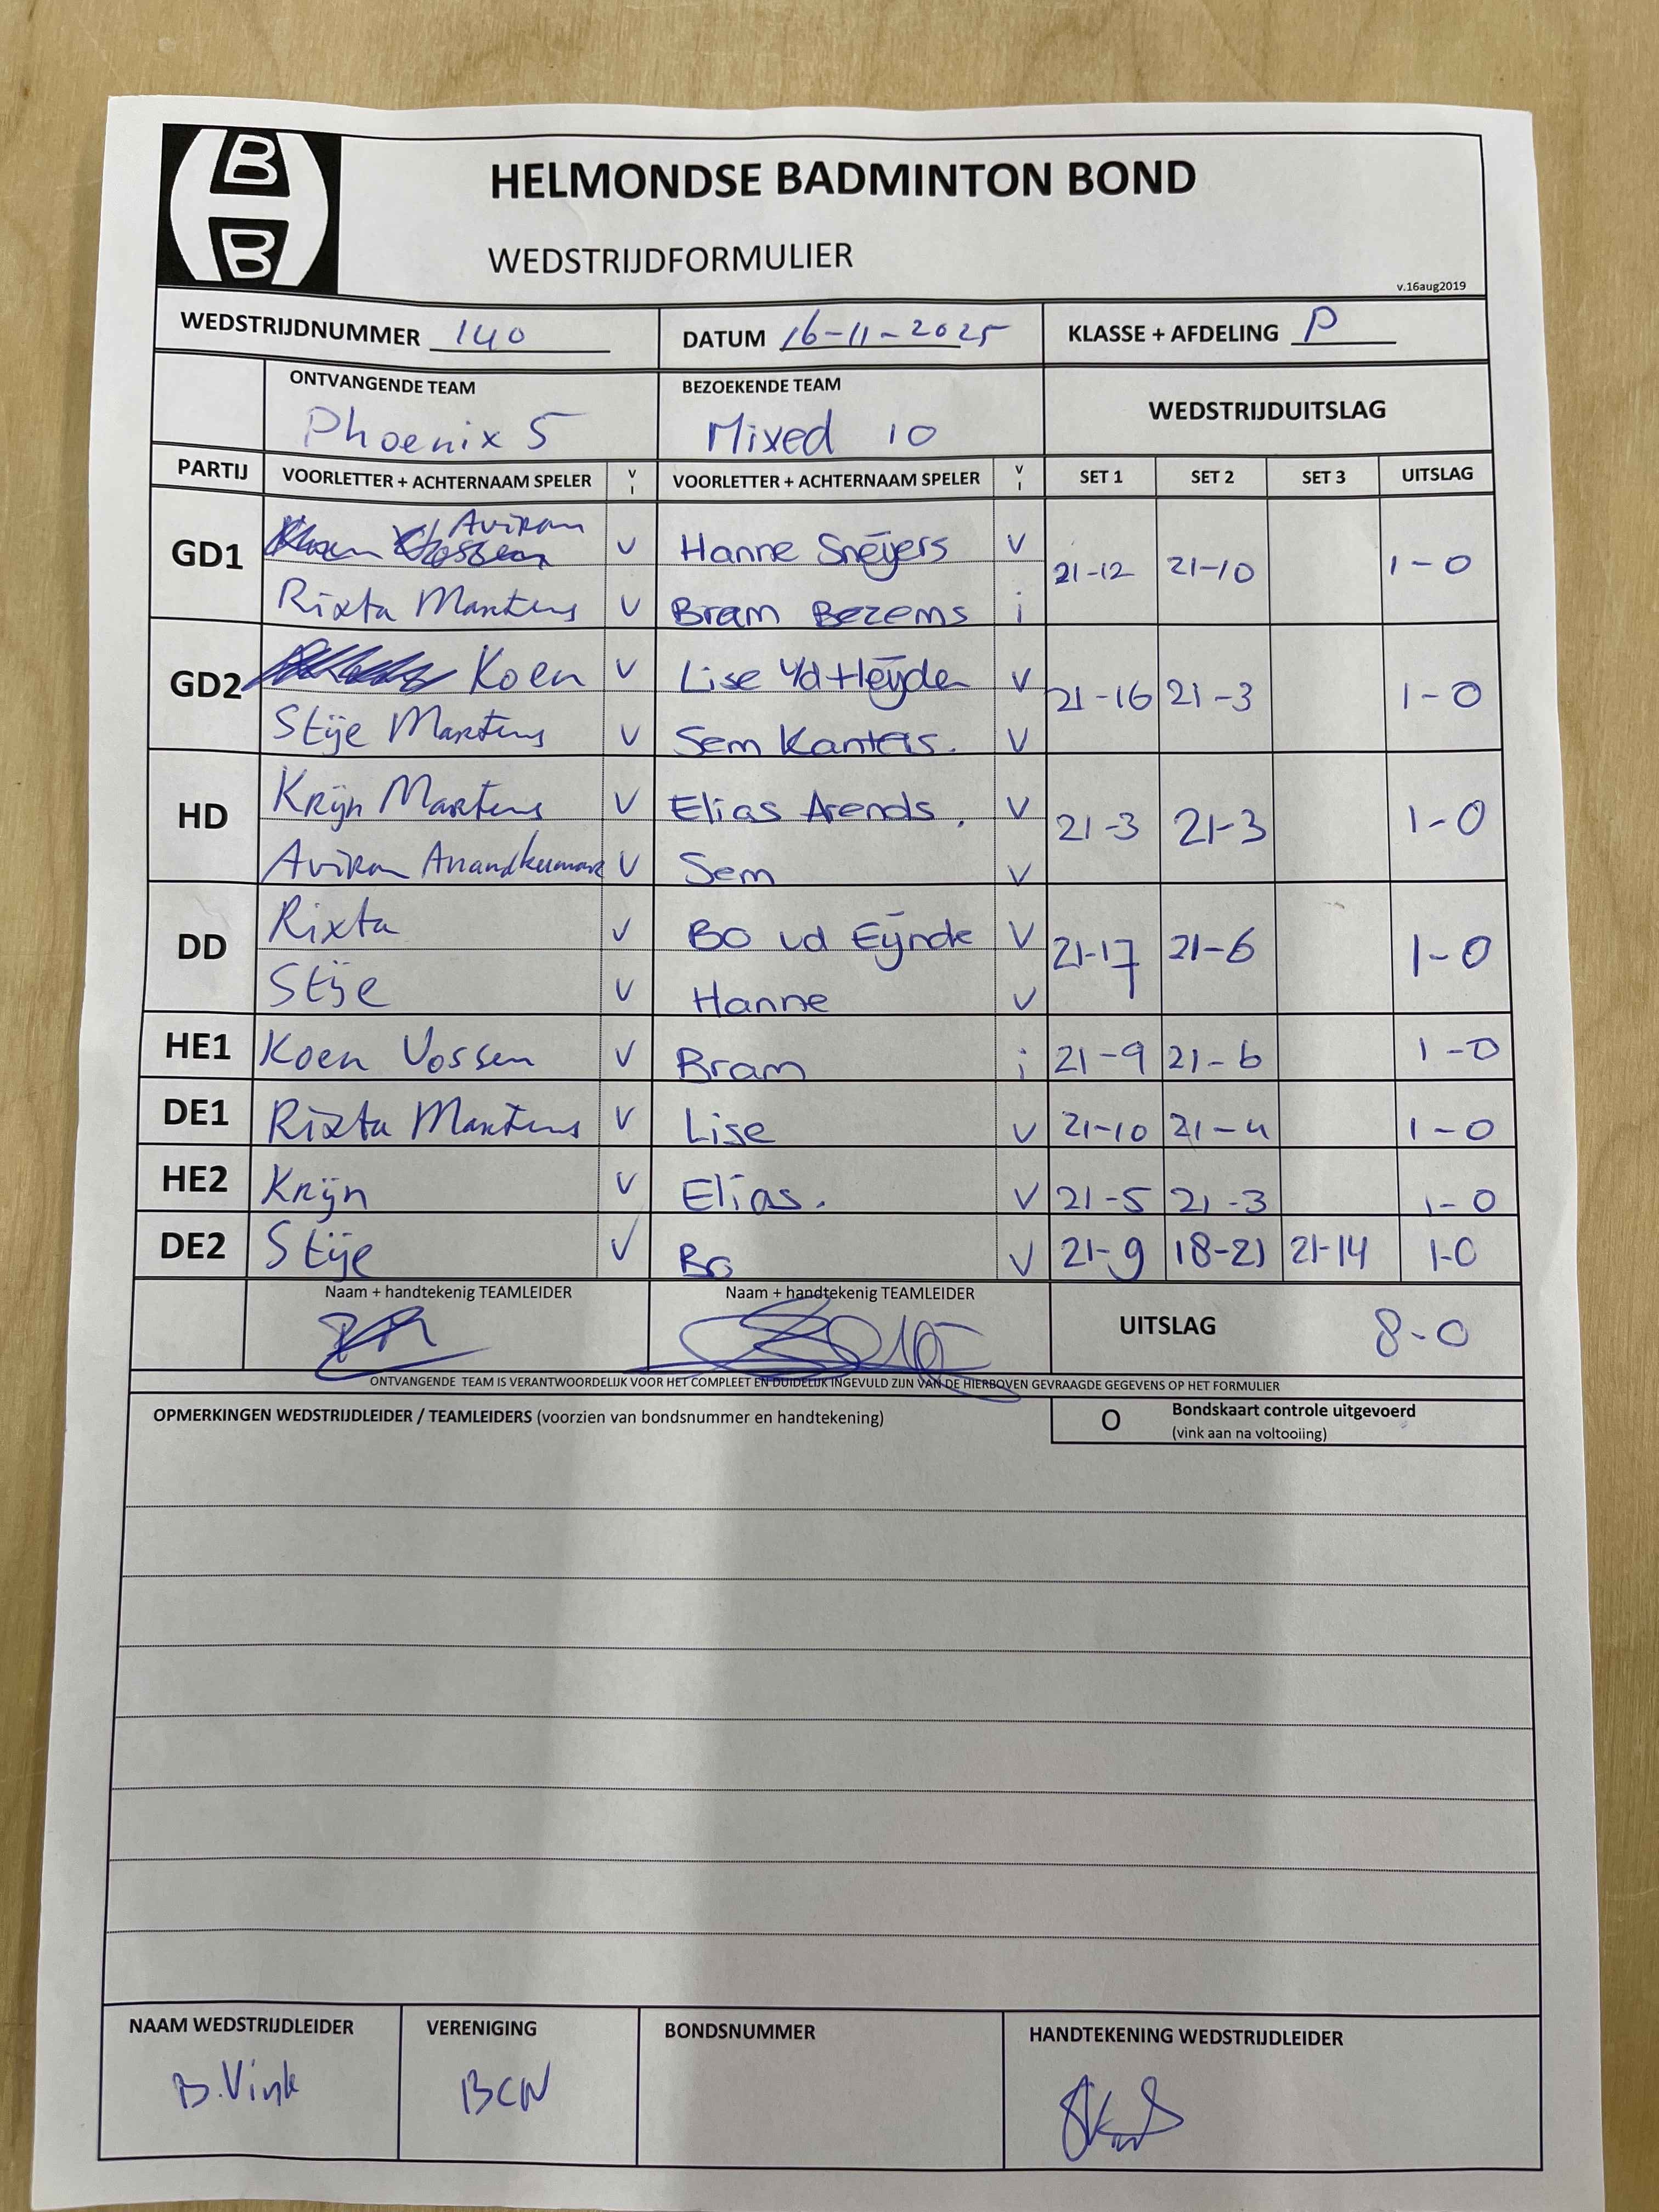 B
B
HELMONDSE BADMINTON BOND
WEDSTRIJDFORMULIER
v.16aug2019
WEDSTRIJDNUMMER 140 DATUM 16-11-2025 KLASSE + AFDELING P
ONTVANGENDE TEAM BEZOEKENDE TEAM WEDSTRIJDUITSLAG
Phoenix 5 Mixed 10
PARTIJ VOORLETTER + ACHTERNAAM SPELER V I VOORLETTER + ACHTERNAAM SPELER V I SET 1 SET 2 SET 3 UITSLAG
GD1 Aviran V Hanne Sneyers V 21-12 21-10 1-0
Rixta Martens V Bram Bezems i
GD2 Koen V Lise v/d Heijden V 21-16 21-3 1-0
Stije Martens V Sem Kanters. V
HD Krijn Martens V Elias Arends. V 21-3 21-3 1-0
Aviran Anandkumar V Sem V
DD Rixta V Bo vd Eijnde V 21-17 21-6 1-0
Stije V Hanne V
HE1 Koen Vossen V Bram i 21-9 21-6 1-0
DE1 Rixta Martens V Lise V 21-10 21-4 1-0
HE2 Krijn V Elias. V 21-5 21-3 1-0
DE2 Stije V Bo V 21-9 18-21 21-14 1-0
Naam + handtekenig TEAMLEIDER Naam + handtekenig TEAMLEIDER
UITSLAG 8-0
ONTVANGENDE TEAM IS VERANTWOORDELIJK VOOR HET COMPLEET EN DUIDELIJK INGEVULD ZIJN VAN DE HIERBOVEN GEVRAAGDE GEGEVENS OP HET FORMULIER
OPMERKINGEN WEDSTRIJDLEIDER / TEAMLEIDERS (voorzien van bondsnummer en handtekening) O Bondskaart controle uitgevoerd
(vink aan na voltooiing)
NAAM WEDSTRIJDLEIDER VERENIGING BONDSNUMMER HANDTEKENING WEDSTRIJDLEIDER
B. Vink BCN